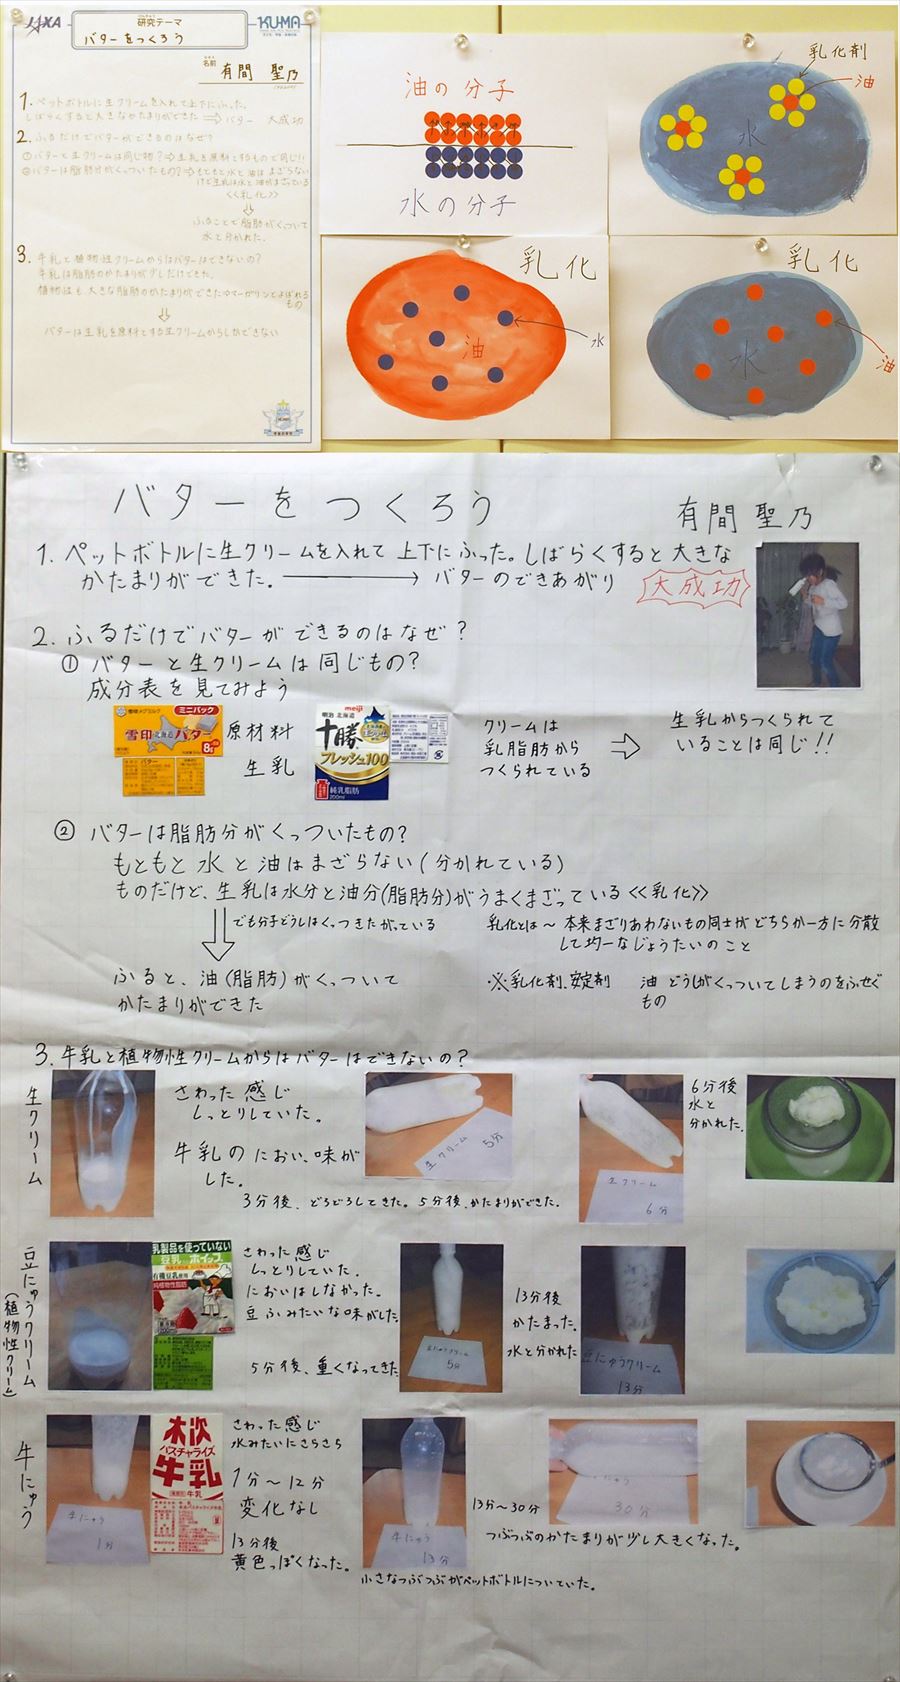 JAXA
研究テーマ
バターをつくろう
KU-MA
名前
有間 聖乃
1. ペットボトルに生クリームを入れて上下にふった。
しばらくすると大きなかたまりができた ⇒ バター 大成功
2. ふるだけでバターができるのはなぜ?
①バターと生クリームは同じ物? ⇒ 生乳を原料とするもので同じ!!
②バターは脂肪分がくっついたもの? ⇒ もともと水と油はまざらない
けど生乳は水と油がまざっている
<<乳化>>
ふることで脂肪がくっついて
水と分かれた。
3. 牛乳と植物性クリームからはバターはできないの?
牛乳は脂肪のかたまりが少しだけできた。
植物性も大きな脂肪のかたまりができた⇒マーガリンとよばれる
もの
バターは生乳を原料とする生クリームからしかできない
油の分子
水の分子
乳化剤
油
水
乳化
水
油
乳化
水
油
バターをつくろう
有間 聖乃
1. ペットボトルに生クリームを入れて上下にふった。しばらくすると大きな
かたまりができた. → バターのできあがり
大成功
2. ふるだけでバターができるのはなぜ?
① バターと生クリームは同じもの?
成分表を見てみよう
雪印メグミルク
ミニパック
雪印北海道バター
8g
バター
原材料
生乳
meiji
明治 北海道
十勝
フレッシュ100
純乳脂肪
200ml
クリームは
乳脂肪から
つくられている
⇒
生乳からつくられて
いることは同じ!!
② バターは脂肪分がくっついたもの?
もともと水と油はまざらない(分かれている)
ものだけど、生乳は水分と油分(脂肪分)がうまくまざっている<<乳化>>
でも分子どうしはくっつきたがっている
乳化とは〜 本来まざりあわないもの同士が どちらか一方に分散
して均一なじょうたいのこと
ふると、油(脂肪)がくっついて
かたまりができた
・※乳化剤、安定剤 油どうしがくっついてしまうのをふせぐ
もの
3. 牛乳と植物性クリームからはバターはできないの?
生クリーム
さわった感じ
しっとりしていた。
牛乳のにおい、味が
した。
3分後、どろどろしてきた。5分後、かたまりができた.
生クリーム
5分
生クリーム
6分
6分後
水と
分かれた.
豆にゅうクリーム
(植物性クリーム)
乳製品を使っていない
豆乳ホイップ
有機豆乳使用
純植物性脂肪
さわった感じ
しっとりしていた。
においはしなかった。
豆ふみたいな味がした.
5分後、重くなってきた.
豆にゅうクリーム
5分
13分後
かたまった.
水と分かれた
豆にゅうクリーム
13分
牛にゅう
牛にゅう
1分
木次
パスチャライズ
牛乳
さわった感じ
水みたいにさらさら
1分〜12分
変化なし
13分後
黄色っぽくなった。
牛にゅう
13分
小さなつぶつぶがペットボトルについていた。
13分〜30分
30分
つぶつぶのかたまりが少し大きくなった。